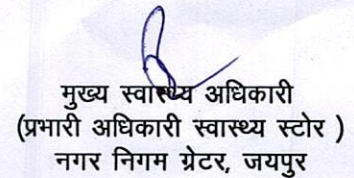 मुख्य स्वास्थ्य अधिकारी
(प्रभारी अधिकारी स्वास्थ्य स्टोर )
नगर निगम ग्रेटर, जयपुर